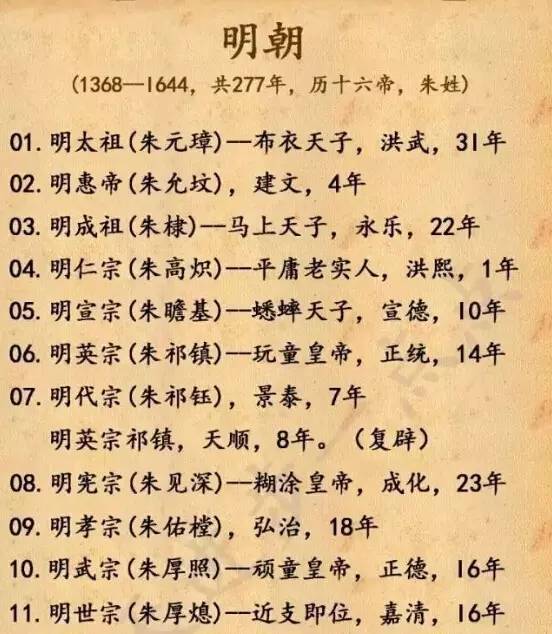 明朝
(1368—1644, 共277年, 历十六帝, 朱姓)
01. 明太祖(朱元璋)—布衣天子, 洪武, 31年
02. 明惠帝(朱允坟), 建文, 4年
03. 明成祖(朱棣)—马上天子, 永乐, 22年
04. 明仁宗(朱高炽)—平庸老实人, 洪熙, 1年
05. 明宣宗(朱瞻基)—蟋蟀天子, 宣德, 10年
06. 明英宗(朱祁镇)—玩童皇帝, 正统, 14年
07. 明代宗(朱祁钰), 景泰, 7年
明英宗祁镇, 天顺, 8年。(复辟)
08. 明宪宗(朱见深)—糊涂皇帝, 成化, 23年
09. 明孝宗(朱佑樘), 弘治, 18年
10. 明武宗(朱厚照)—顽童皇帝, 正德, 16年
11. 明世宗(朱厚熜)—近支即位, 嘉清, 16年